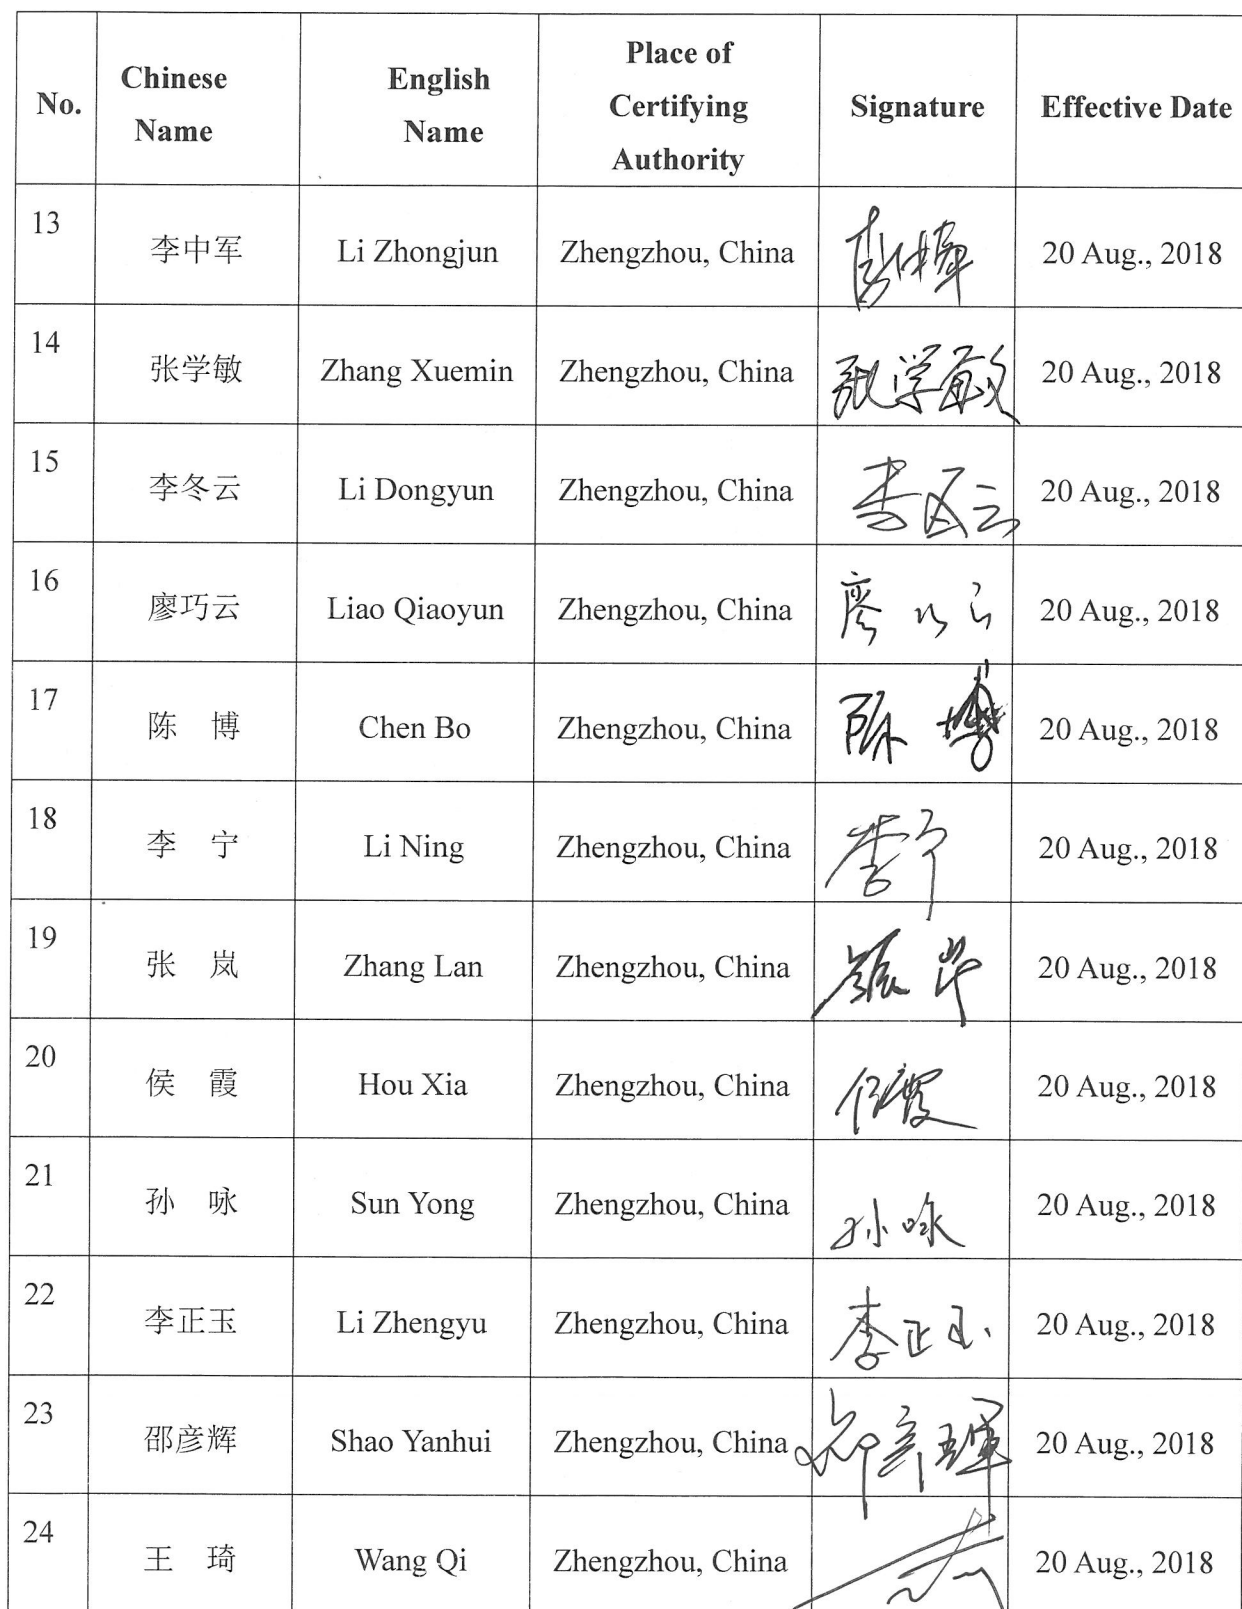 No.
Chinese
Name
English
Name
Place of
Certifying
Authority
Signature
Effective Date
13
李中军
Li Zhongjun
Zhengzhou, China
20 Aug., 2018
14
张学敏
Zhang Xuemin
Zhengzhou, China
张学敏
20 Aug., 2018
15
李冬云
Li Dongyun
Zhengzhou, China
李冬云
20 Aug., 2018
16
廖巧云
Liao Qiaoyun
Zhengzhou, China
廖巧云
20 Aug., 2018
17
陈 博
Chen Bo
Zhengzhou, China
陈博
20 Aug., 2018
18
李 宁
Li Ning
Zhengzhou, China
李宁
20 Aug., 2018
19
张 岚
Zhang Lan
Zhengzhou, China
20 Aug., 2018
20
侯 霞
Hou Xia
Zhengzhou, China
侯霞
20 Aug., 2018
21
孙 咏
Sun Yong
Zhengzhou, China
孙咏
20 Aug., 2018
22
李正玉
Li Zhengyu
Zhengzhou, China
李正玉
20 Aug., 2018
23
邵彦辉
Shao Yanhui
Zhengzhou, China
邵彦辉
20 Aug., 2018
24
王 琦
Wang Qi
Zhengzhou, China
20 Aug., 2018